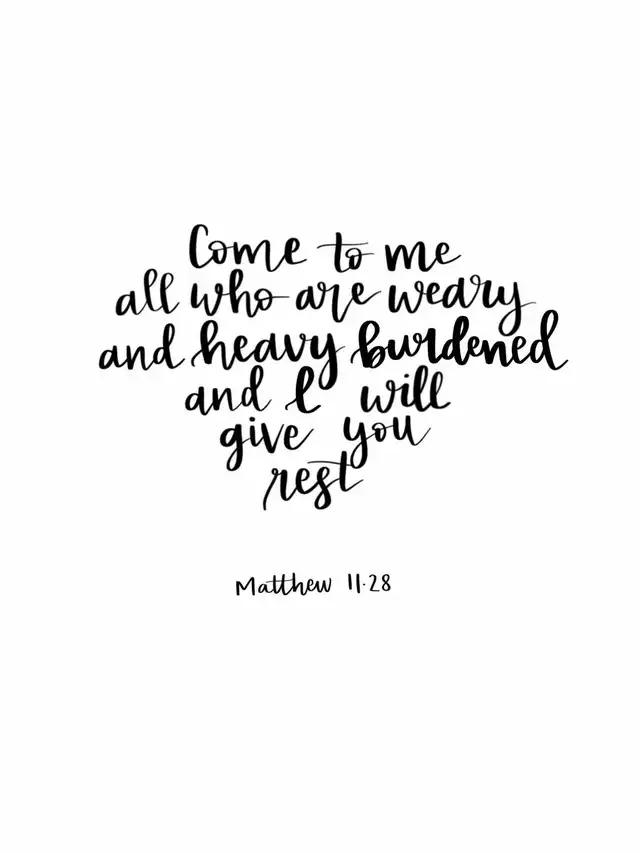 Come to me
all who are weary
and heavy burdened
and I will
give you
rest
Matthew 11.28